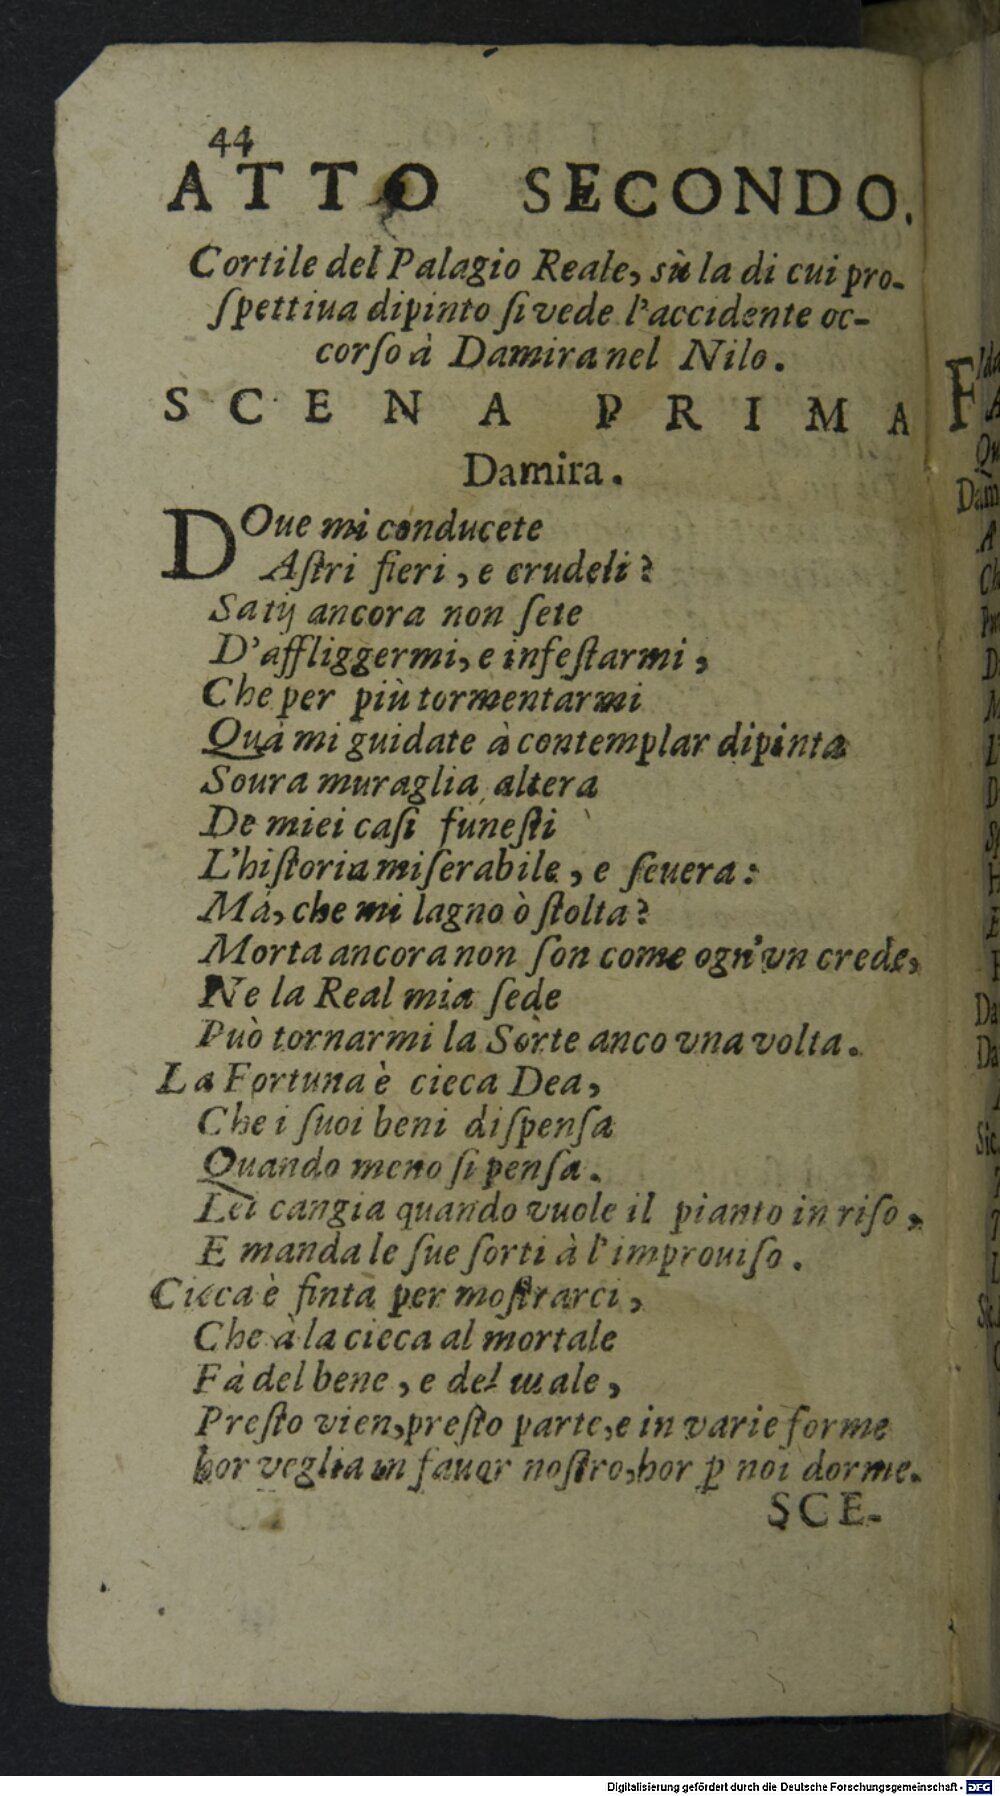 44
ATTO SECONDO.
Cortile del Palagio Reale, sù la di cui pro-
ſpettiua dipinto ſi vede l'accidente oc-
corſo à Damira nel Nilo.
SCENA PRIMA
Damira.
DOue mi conducete
Aſtri fieri, e crudeli?
Satij ancora non ſete
D'affliggermi, e infeſtarmi,
Che per più tormentarmi
Quà mi guidate à contemplar dipinta
Soura muraglia altera
De miei caſi funeſti
L'hiſtoria miſerabile, e ſeuera:
Mà, che mi lagno ò ſtolta?
Morta ancora non ſon come ogn'vn crede,
Ne la Real mia ſede
Può tornarmi la Sorte anco vna volta.
La Fortuna è cieca Dea,
Che i ſuoi beni diſpenſa
Quando meno ſi penſa.
Lei cangia quando vuole il pianto in riſo,
E manda le ſue ſorti à l'improuiſo.
Cieca è finta per moſtrarci,
Che à la cieca al mortale
Fà del bene, e del male,
Preſto vien, preſto parte, e in varie forme
hor veglia in fauor noſtro, hor ꝑ noi dorme.
SCE-
Digitalisierung gefördert durch die Deutsche Forschungsgemeinschaft - DFG